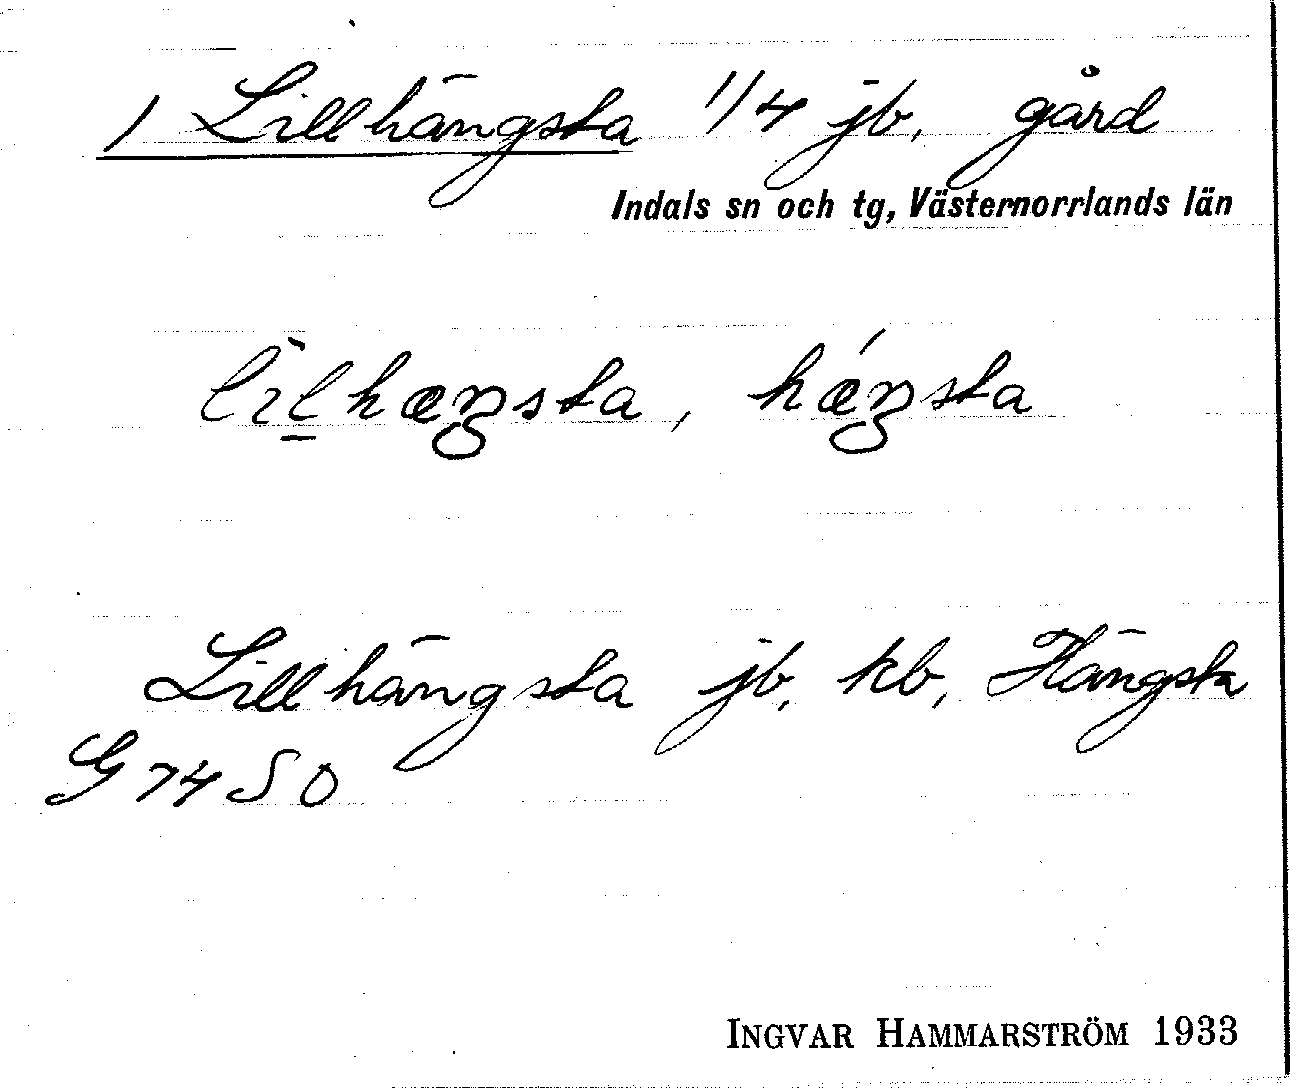 1 Lillhängsta 1/4 jb, gård
Indals sn och tg, Västernorrlands län
lìl̠hæŋsta, hǽŋsta
Lillhängsta jb, kb, Hängsta
G 74 SO
INGVAR HAMMARSTRÖM 1933